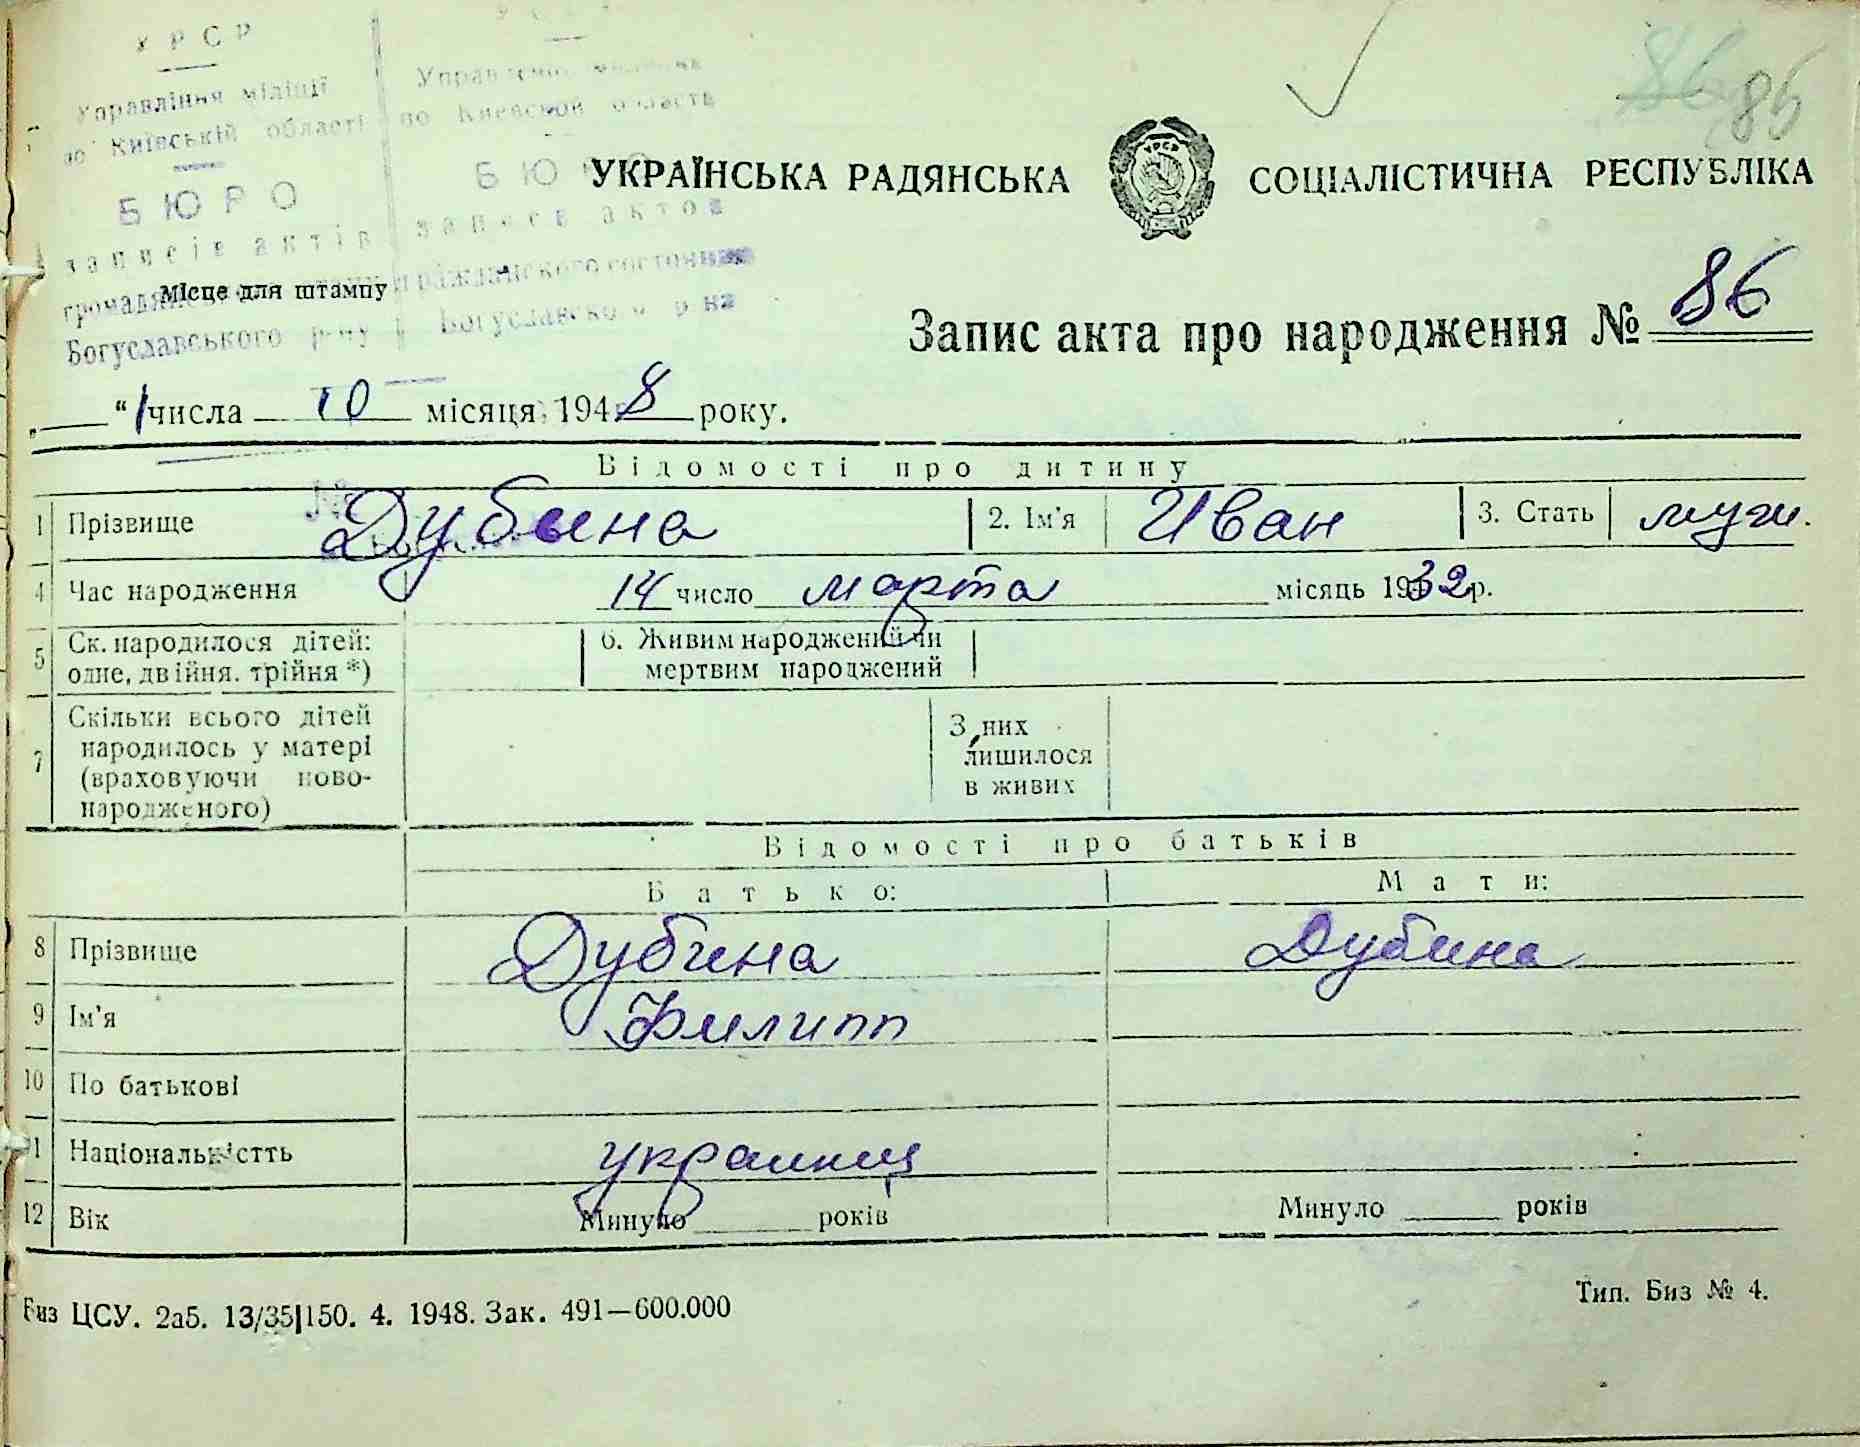 УРСР
Управління міліції
по Київській області
БЮРО
записів актів
Богуславського р-ну
Управление милиции
по Киевской области
БЮРО
записи актов
гражданского состояния
Богуславского р-на
86 85
УКРАЇНСЬКА РАДЯНСЬКА СОЦІАЛІСТИЧНА РЕСПУБЛІКА
УРСР
Місце для штампу
Запис акта про народження № 86
„ “ 1 числа 10 місяця 1948 року.
Відомості про дитину
1 Прізвище Дубына 2. Ім'я Иван 3. Стать муж.
4 Час народження 14 число марта місяць 1932 р.
5 Ск. народилося дітей: одне, двійня, трійня *) 6. Живим народжений чи мертвим народжений
7 Скільки всього дітей народилось у матері (враховуючи ново-народженого) З них лишилося в живих
Відомості про батьків
Батько: Мати:
8 Прізвище Дубина Дубина
9 Ім'я Филипп
10 По батькові
11 Національність украинец
12 Вік Минуло ____ років Минуло ____ років
Биз ЦСУ. 2а5. 13/35|150. 4. 1948. Зак. 491—600.000
Тип. Биз № 4.